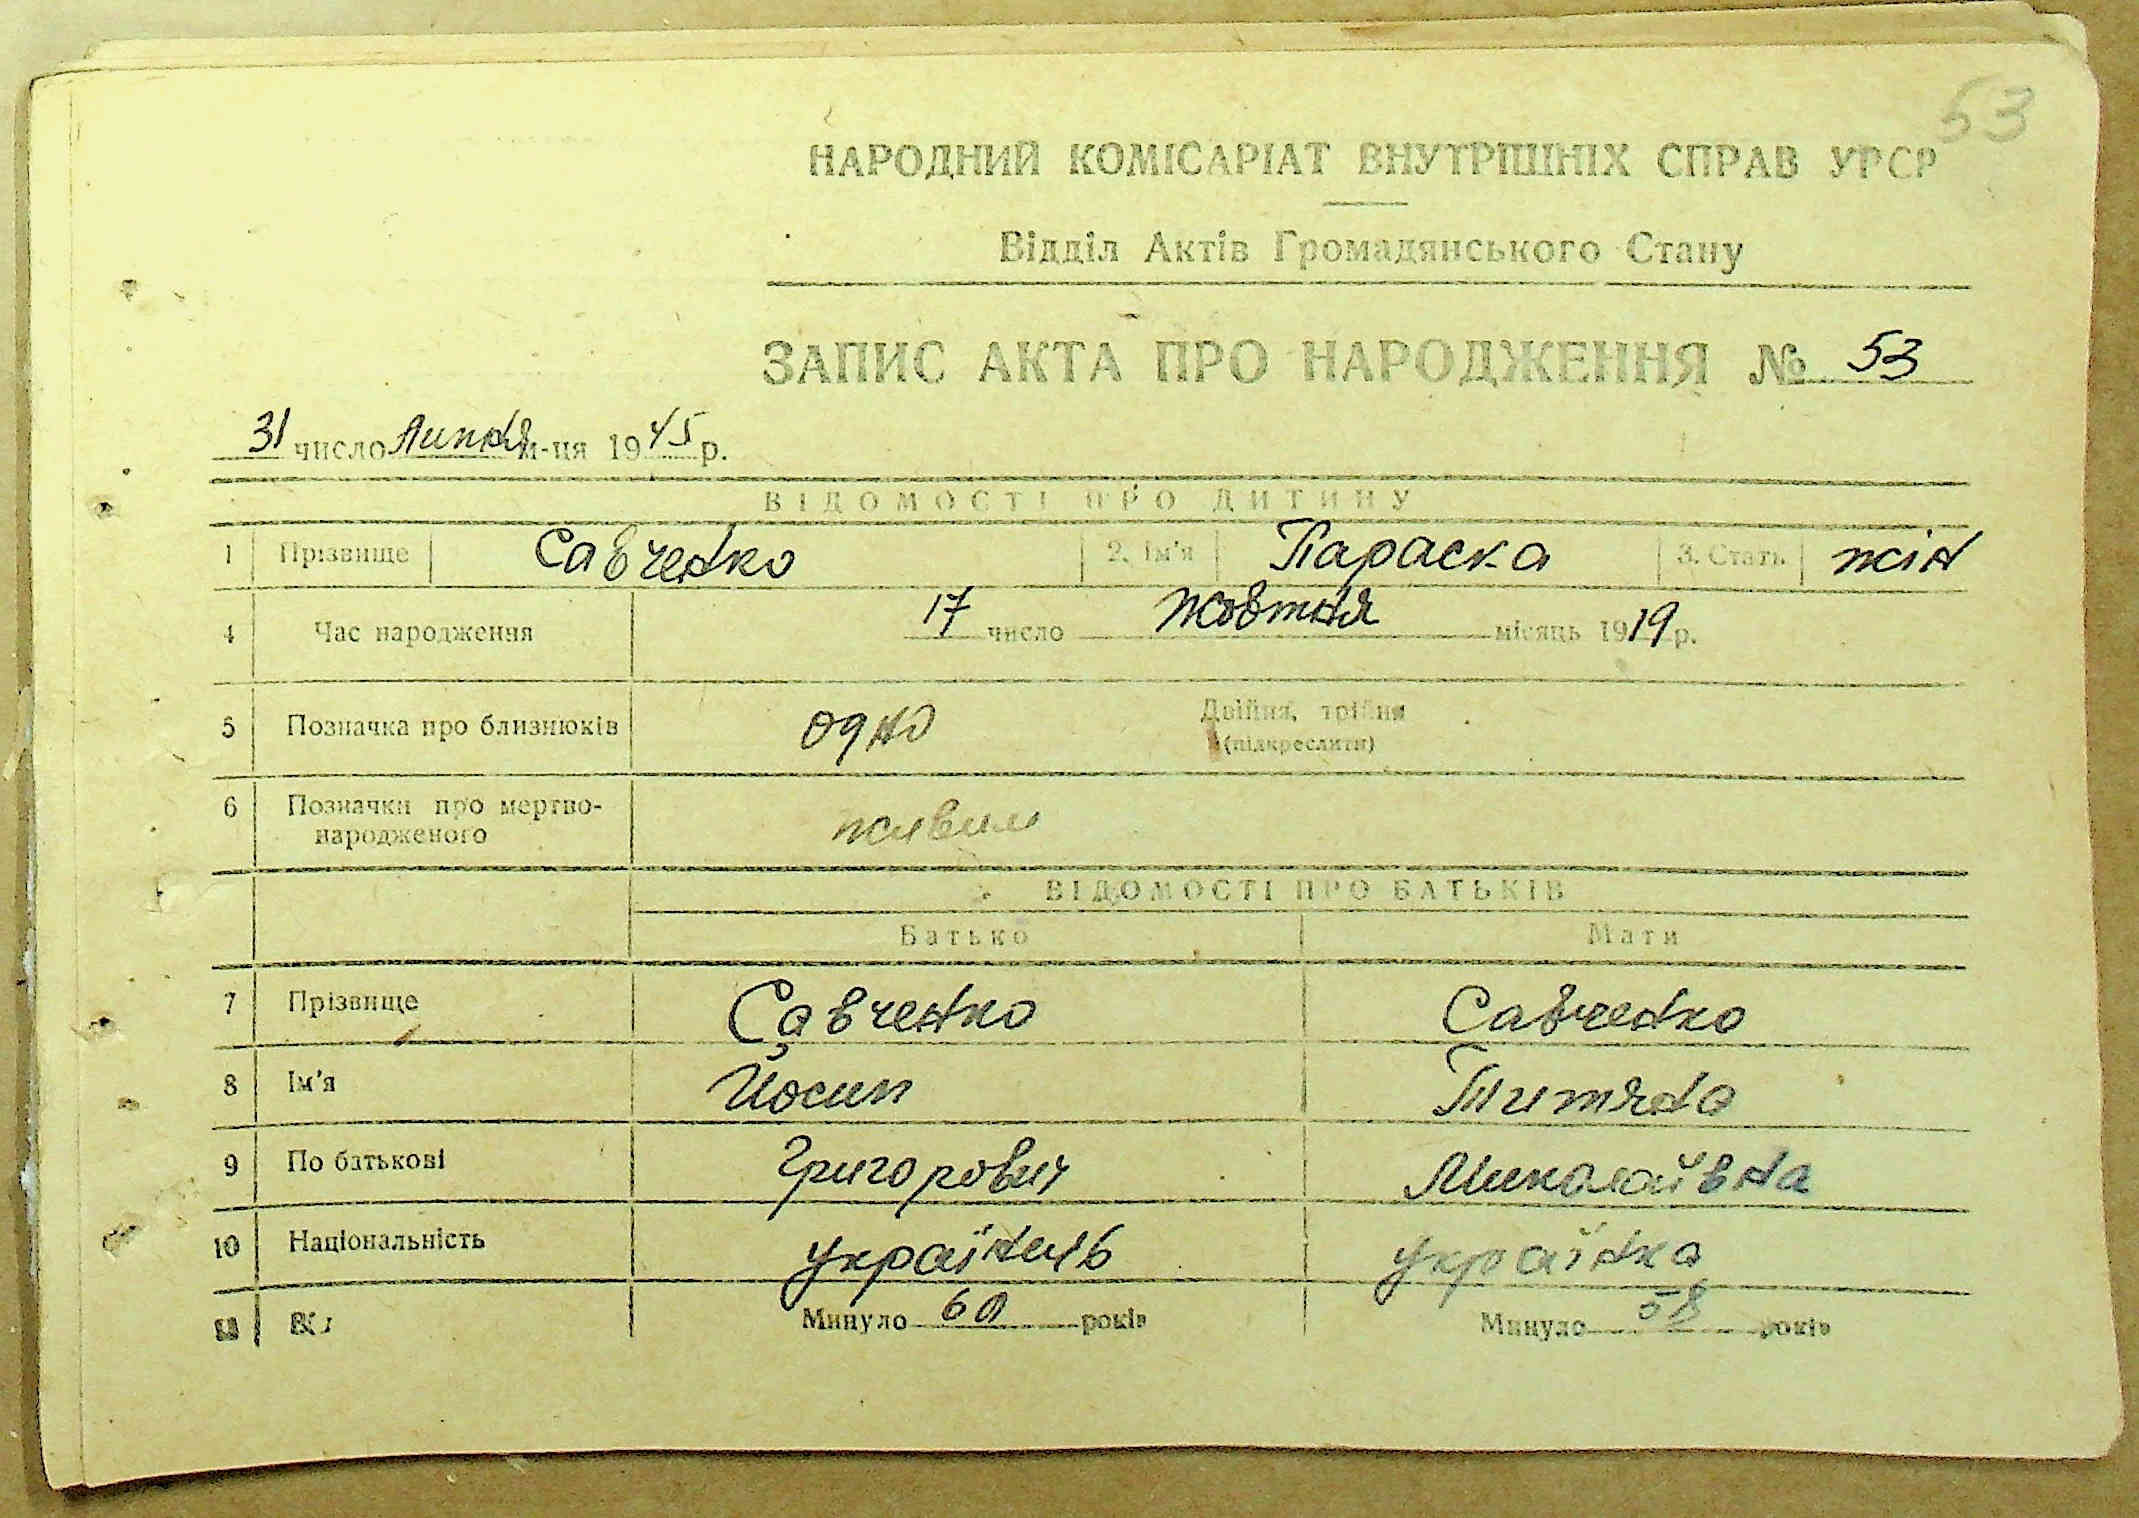 53
НАРОДНИЙ КОМІСАРІАТ ВНУТРІШНІХ СПРАВ УРСР
Відділ Актів Громадянського Стану
ЗАПИС АКТА ПРО НАРОДЖЕННЯ № 53
31 число Липня м-ця 1945 р.
ВІДОМОСТІ ПРО ДИТИНУ
1 Прізвище Савченко 2. Ім'я Параска 3. Стать жін
4 Час народження 17 число жовтня місяць 1919 р.
5 Позначка про близнюків одно Двійня, трійня
(підкреслити)
6 Позначки про мертво-
народженого живим
ВІДОМОСТІ ПРО БАТЬКІВ
Батько Мати
7 Прізвище Савченко Савченко
8 Ім'я Йосип Титяна
9 По батькові Григорович Миколаївна
10 Національність українець українка
11 Минуло 60 років Минуло 58 років